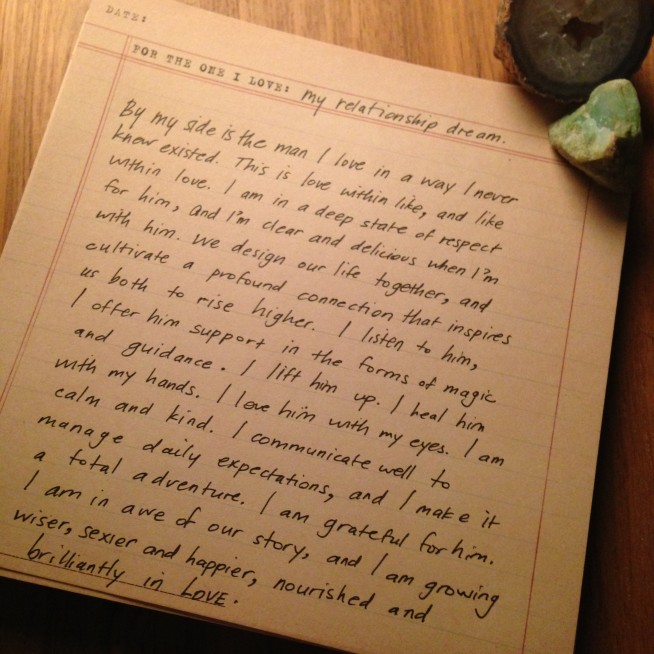 DATE:
FOR THE ONE I LOVE: my relationship dream.
By my side is the man I love in a way I never
knew existed. This is love within like, and like
within love. I am in a deep state of respect
for him, and I'm clear and delicious when I'm
with him. We design our life together, and
cultivate a profound connection that inspires
us both to rise higher. I listen to him,
I offer him support in the forms of magic
and guidance. I lift him up. I heal him
with my hands. I love him with my eyes. I am
calm and kind. I communicate well to
manage daily expectations, and I make it
a total adventure. I am grateful for him.
I am in awe of our story, and I am growing
wiser, sexier and happier, nourished and
brilliantly in LOVE.